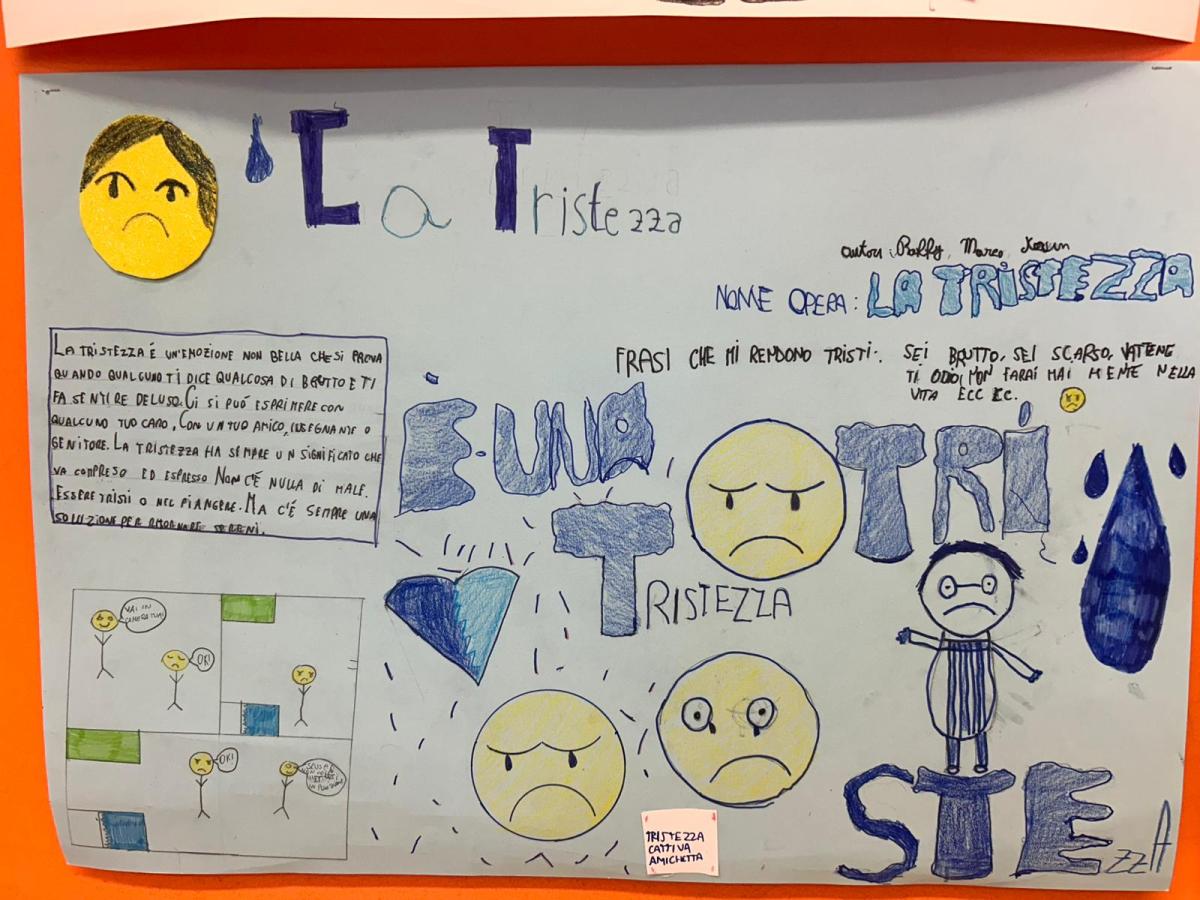 La Tristezza
autori Raffy, Marco,
NOME OPERA: LA TRISTEZZA
FRASI CHE MI RENDONO TRISTI: SEI BRUTTO, SEI SCARSO, VATTENE
TI ODIO, NON FARAI MAI NIENTE NELLA
VITA ECC ECC.
LA TRISTEZZA É UN'EMOZIONE NON BELLA CHE SI PROVA
QUANDO QUALCUNO TI DICE QUALCOSA DI BRUTTO E TI
FA SENTIRE DELUSO. CI SI PUÓ ESPRIMERE CON
QUALCUNO TUO CARO, CON UN TUO AMICO, INSEGNANTE O
GENITORE. LA TRISTEZZA HA SEMPRE UN SIGNIFICATO CHE
VA COMPRESO ED ESPRESSO NON C'É NULLA DI MALE.
ESSERE TRISTI O NEL PIANGERE. MA C'É SEMPRE UNA
SOLUZIONE PER RITORNARE SERENI.
E UNA
TRISTEZZA
TRI
STEZZA
VAI IN
CAMERA TUA!
OK!
OK!
TRISTEZZA
CATTIVA
AMICHETTA